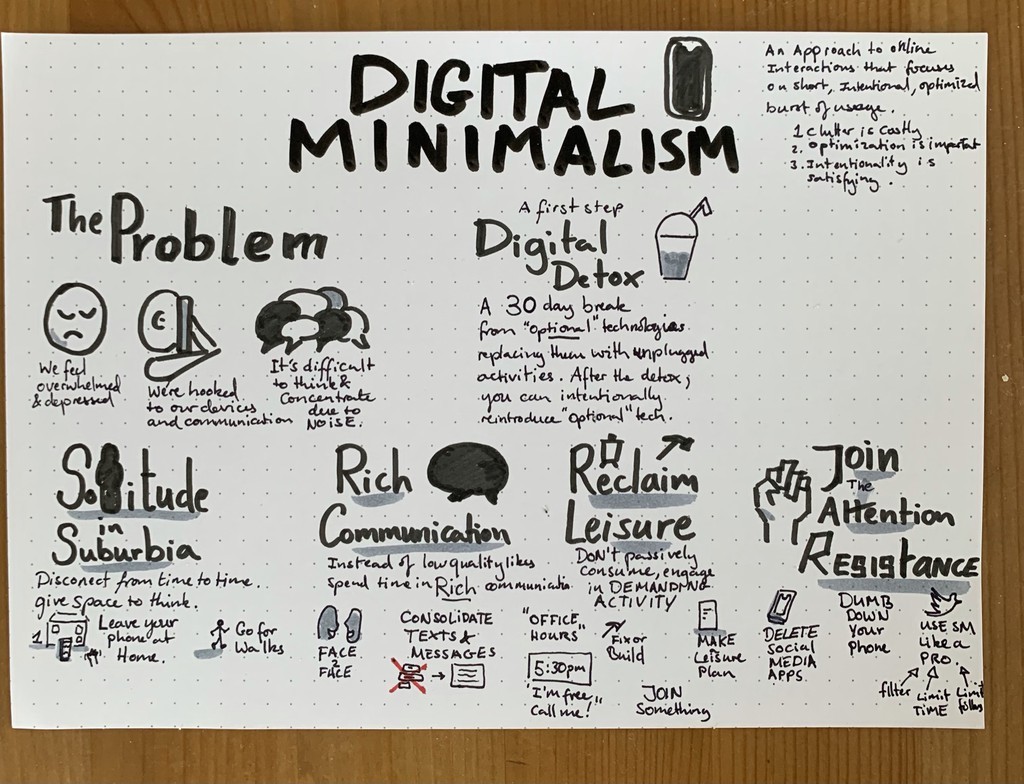 DIGITAL
MINIMALISM
An Approach to online
Interactions that focuses
on short, Intentional, optimized
burst of usage.
1 clutter is costly
2. optimization is important
3. Intentionality is
satisfying.
The Problem
We feel
overwhelmed
& depressed
We're hooked
to our devices
and communication
It's difficult
to think &
Concentrate
due to
NOISE.
A first step
Digital
Detox
A 30 day break
from "optional" technologies
replacing them with unplugged
activities. After the detox,
you can intentionally
reintroduce "optional" tech.
Solitude
in
Suburbia
Disconect from time to time.
give space to think.
1
Leave your
phone at
Home.
Go for
Walks
Rich
Communication
Instead of low quality likes
spend time in Rich communicatio
FACE
2
FACE
CONSOLIDATE
TEXTS &
MESSAGES
"OFFICE
HOURS"
5:30pm
"I'm free,
call me!"
Reclaim
Leisure
DON'T passively
consume, engage
in DEMANDING
ACTIVITY
Fix or
Build
JOIN
Something
MAKE
a
Leisure
Plan
Join
The
Attention
Resistance
DELETE
Social
MEDIA
APPS.
DUMB
DOWN
Your
phone
USE SM
Like a
PRO.
filter
Limit
TIME
Limit